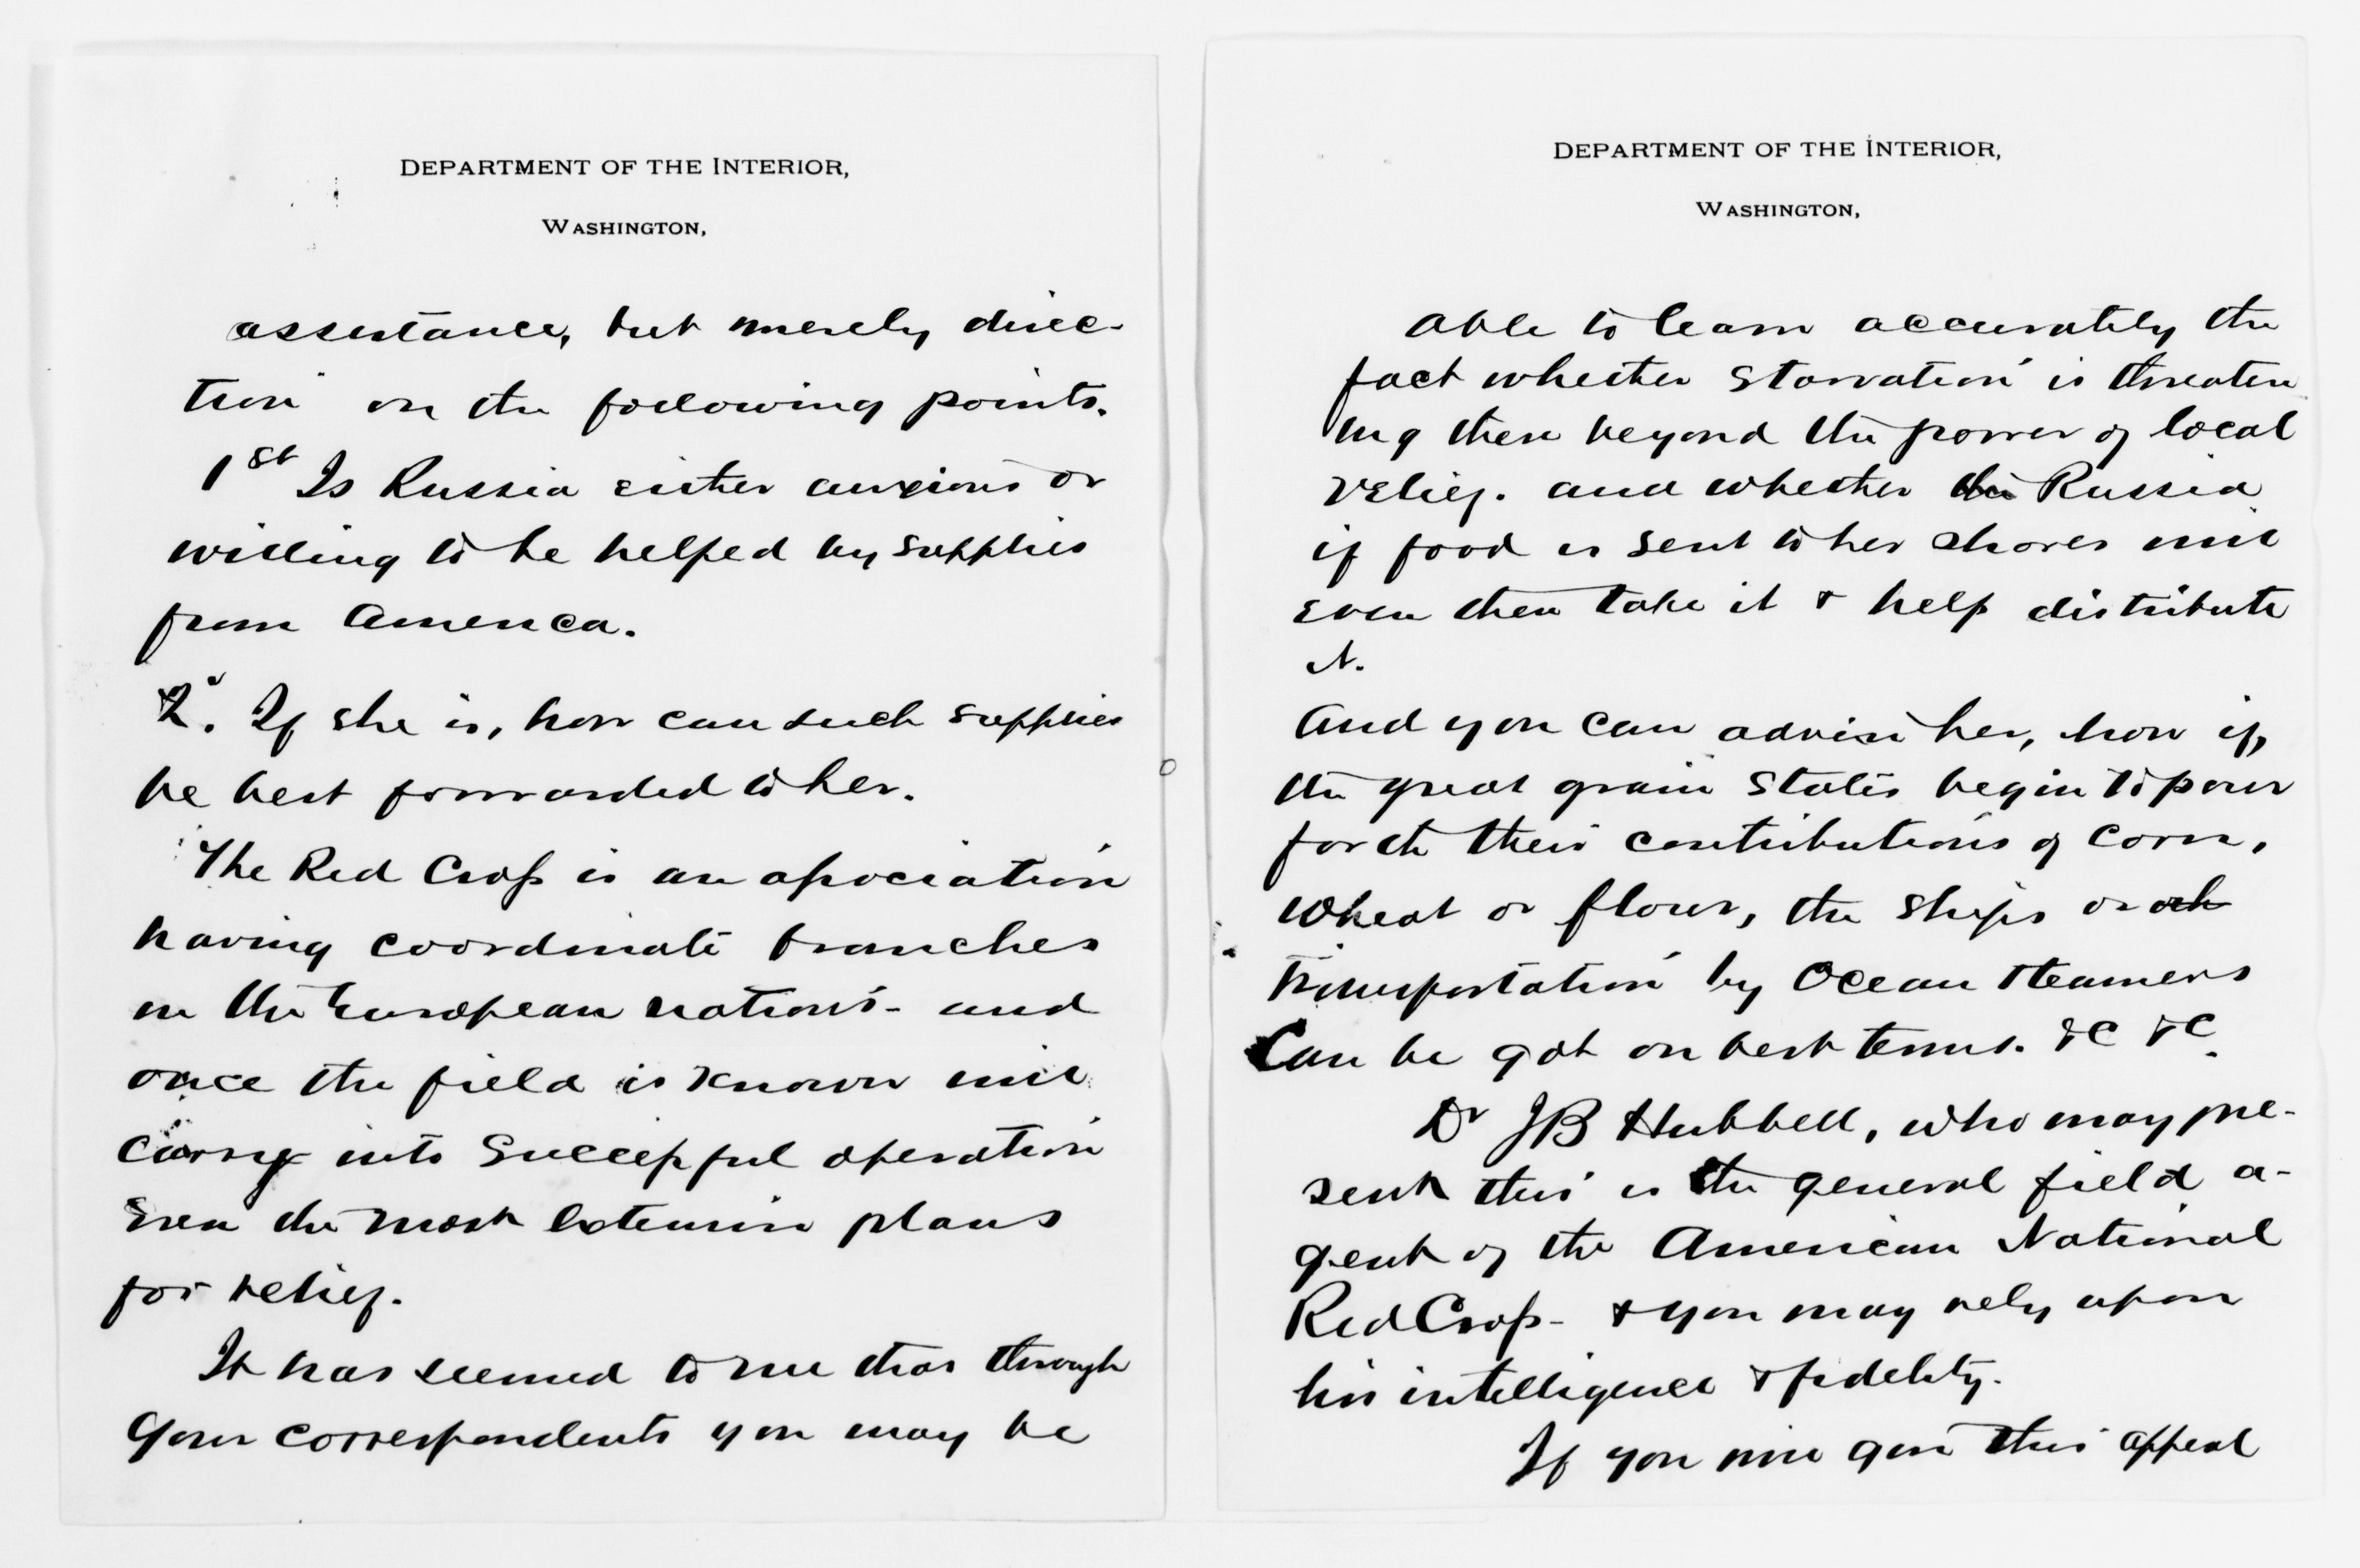 DEPARTMENT OF THE INTERIOR,
WASHINGTON,
assistance, but merely direc-
tion on the following points.
1st Is Russia either anxious or
willing to be helped by supplies
from America.
2d. If she is, how can such supplies
be best forwarded to her.
The Red Cross is an association
having coordinate branches
in the European nations - and
once the field is known will
carry into successful operation
even the most extensive plans
for relief.
It has seemed to me that through
your correspondents you may be
DEPARTMENT OF THE INTERIOR,
WASHINGTON,
able to learn accurately the
fact whether starvation is threaten
ing there beyond the power of local
relief. and whether the Russia
if food is sent to her shores will
even then take it & help distribute
it.
And you can advise her, how if,
the great grain States begin to pour
forth their contributions of corn,
wheat or flour, the ships or oth
transportation by Ocean steamers
Can be got on best terms. &c &c.
Dr JB Hubbell, who may pre-
sent this is the general field a-
gent of the American National
Red Cross - & you may rely upon
his intelligence & fidelity.
If you will give this appeal